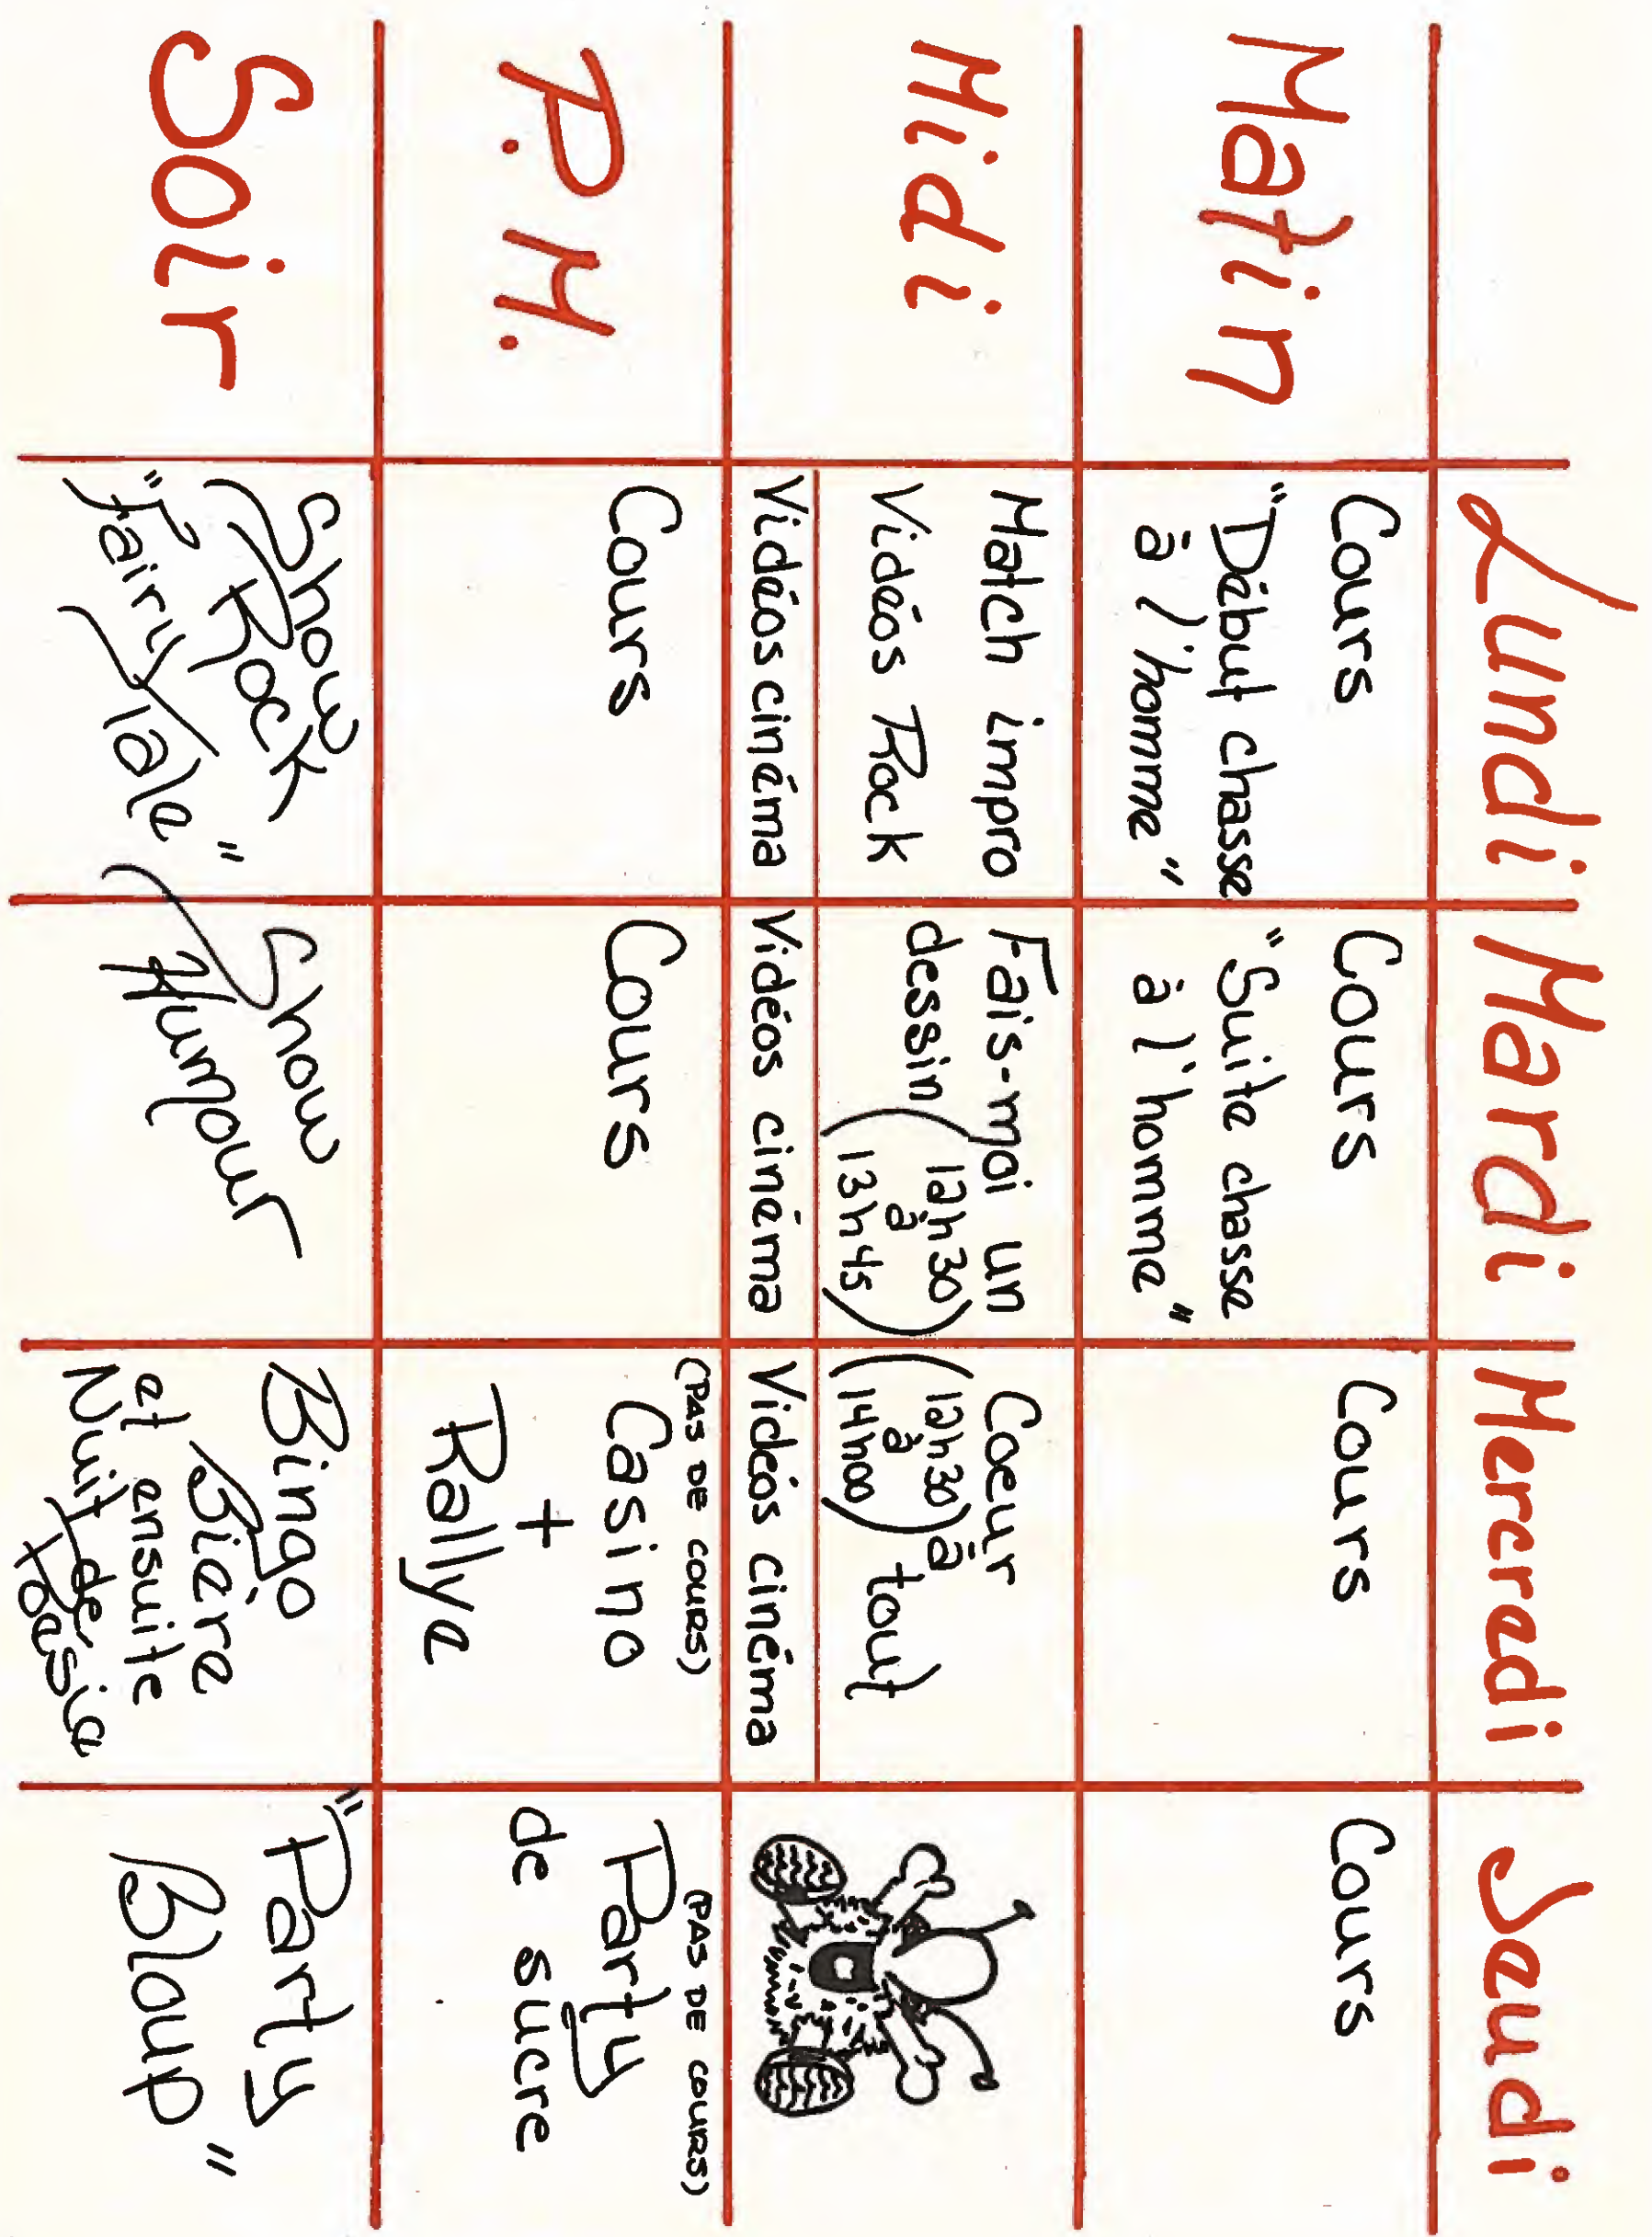 Lundi Mardi Mercredi Jeudi
Matin
Cours
"Début chasse
à l'homme"
Cours
"Suite chasse
à l'homme"
Cours
Cours
Midi
Match impro
Vidéos Rock
Vidéos cinéma
Fais-moi un
dessin (12h30
à
13h45)
Vidéos cinéma
Coeur
(12h30
à
14h00) à tout
Vidéos cinéma
P.M.
Cours
Cours
(PAS DE COURS)
Casino
+
Rallye
(PAS DE COURS)
Party
de sucre
Soir
Show
Rock
"Fairy Tale"
Show
Humour
Bingo
Bière
et ensuite
Nuit de
Poésie
"Party
Bloup"